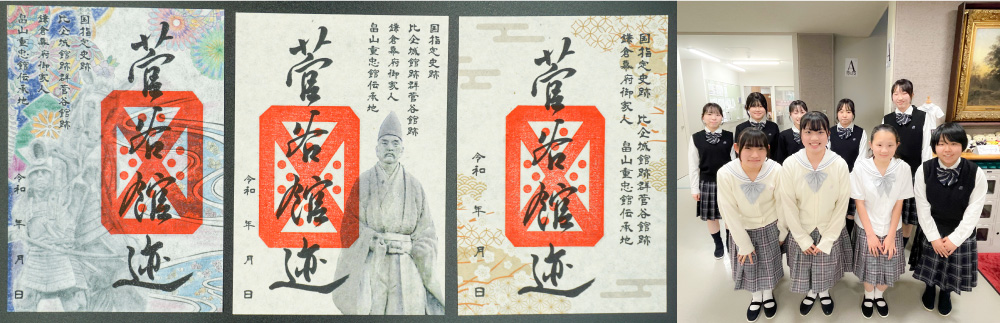 国指定史跡
比企城館跡群菅谷館跡
鎌倉幕府御家人
畠山重忠館伝承地
菅谷館迹
令和 年 月 日
国指定史跡
比企城館跡群菅谷館跡
鎌倉幕府御家人
畠山重忠館伝承地
菅谷館迹
令和 年 月 日
国指定史跡 比企城館跡群菅谷館跡
鎌倉幕府御家人 畠山重忠館伝承地
菅谷館迹
令和 年 月 日
A